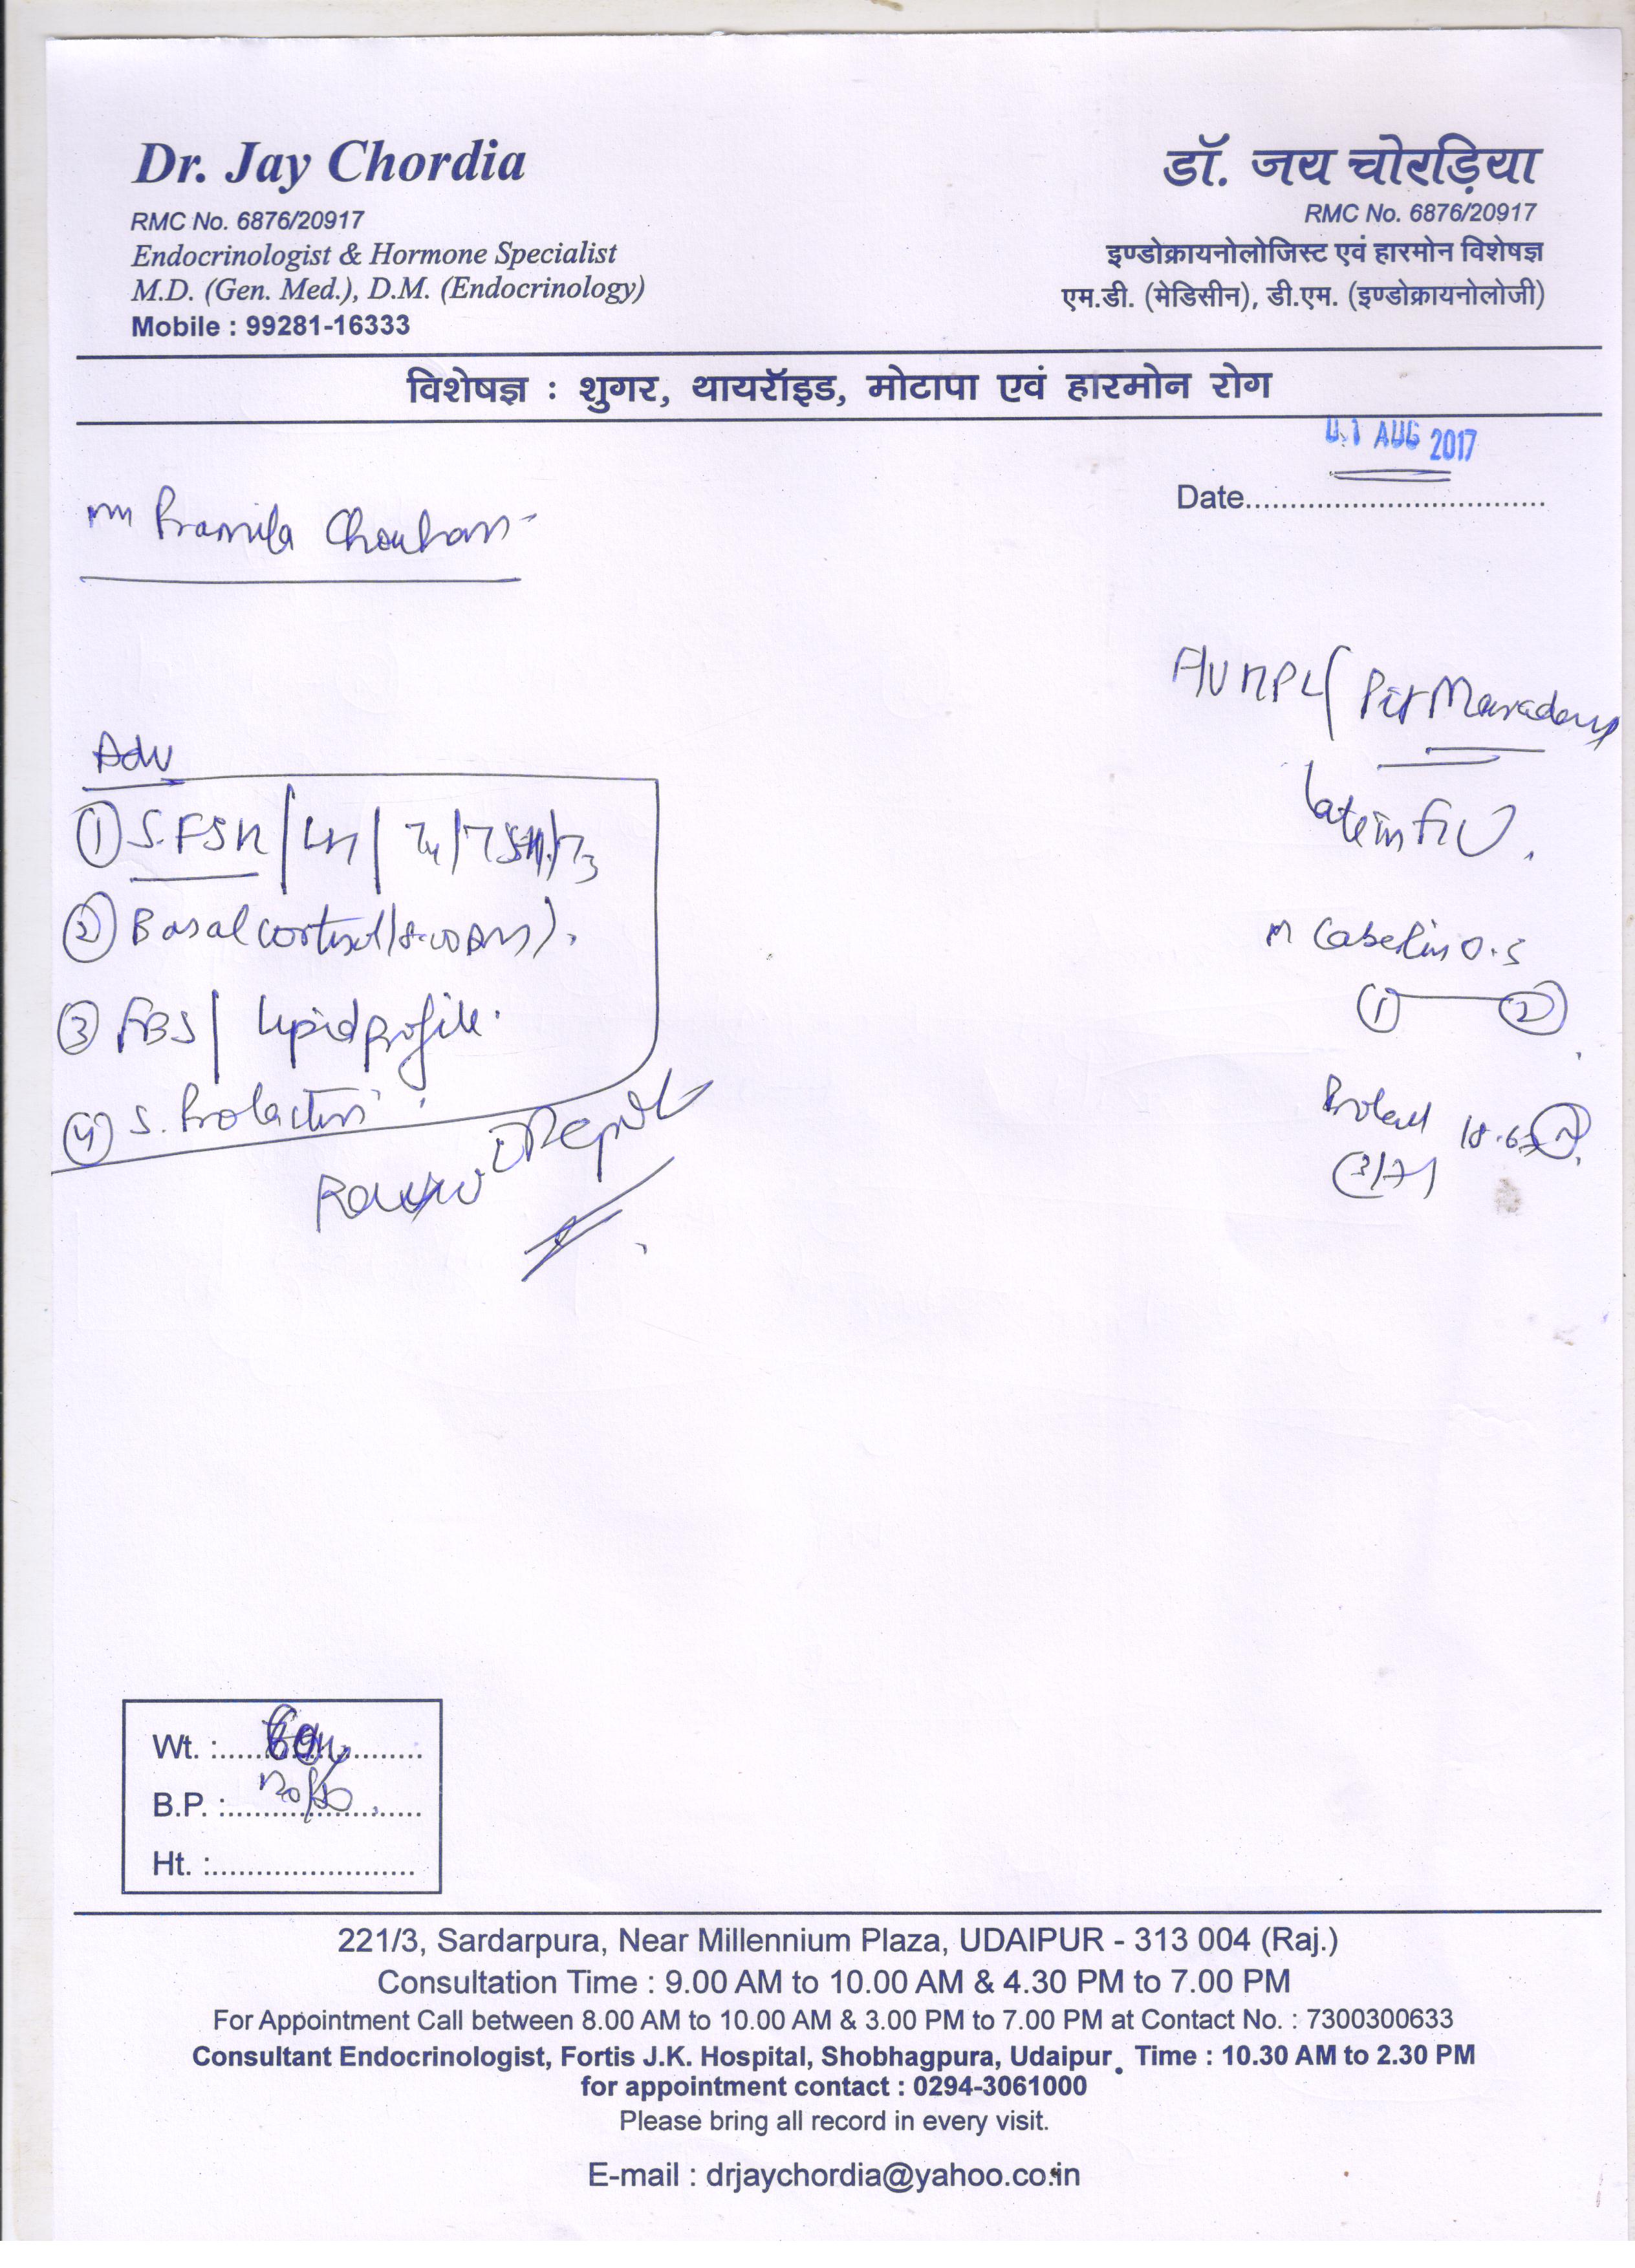 Dr. Jay Chordia
RMC No. 6876/20917
Endocrinologist & Hormone Specialist
M.D. (Gen. Med.), D.M. (Endocrinology)
Mobile : 99281-16333
डॉ. जय चोरड़िया
RMC No. 6876/20917
इण्डोक्रायनोलोजिस्ट एवं हारमोन विशेषज्ञ
एम.डी. (मेडिसीन), डी.एम. (इण्डोक्रायनोलोजी)
विशेषज्ञ : शुगर, थायरॉइड, मोटापा एवं हारमोन रोग
01 AUG 2017
Date................................
Pramila Chouhan
Adv
① S.FSH / LH / T4 / TSH / T3
② Basal cortisol (8.00AM).
③ FBS / Lipid profile.
④ S. Prolactin
Review Reports
Pit Macroadenoma
Late in F/U.
Caberlin 0.5
① — ②
Prolact 18.6
(3/7)
Wt. :
B.P. :
Ht. :
221/3, Sardarpura, Near Millennium Plaza, UDAIPUR - 313 004 (Raj.)
Consultation Time : 9.00 AM to 10.00 AM & 4.30 PM to 7.00 PM
For Appointment Call between 8.00 AM to 10.00 AM & 3.00 PM to 7.00 PM at Contact No. : 7300300633
Consultant Endocrinologist, Fortis J.K. Hospital, Shobhagpura, Udaipur. Time : 10.30 AM to 2.30 PM
for appointment contact : 0294-3061000
Please bring all record in every visit.
E-mail : drjaychordia@yahoo.co.in